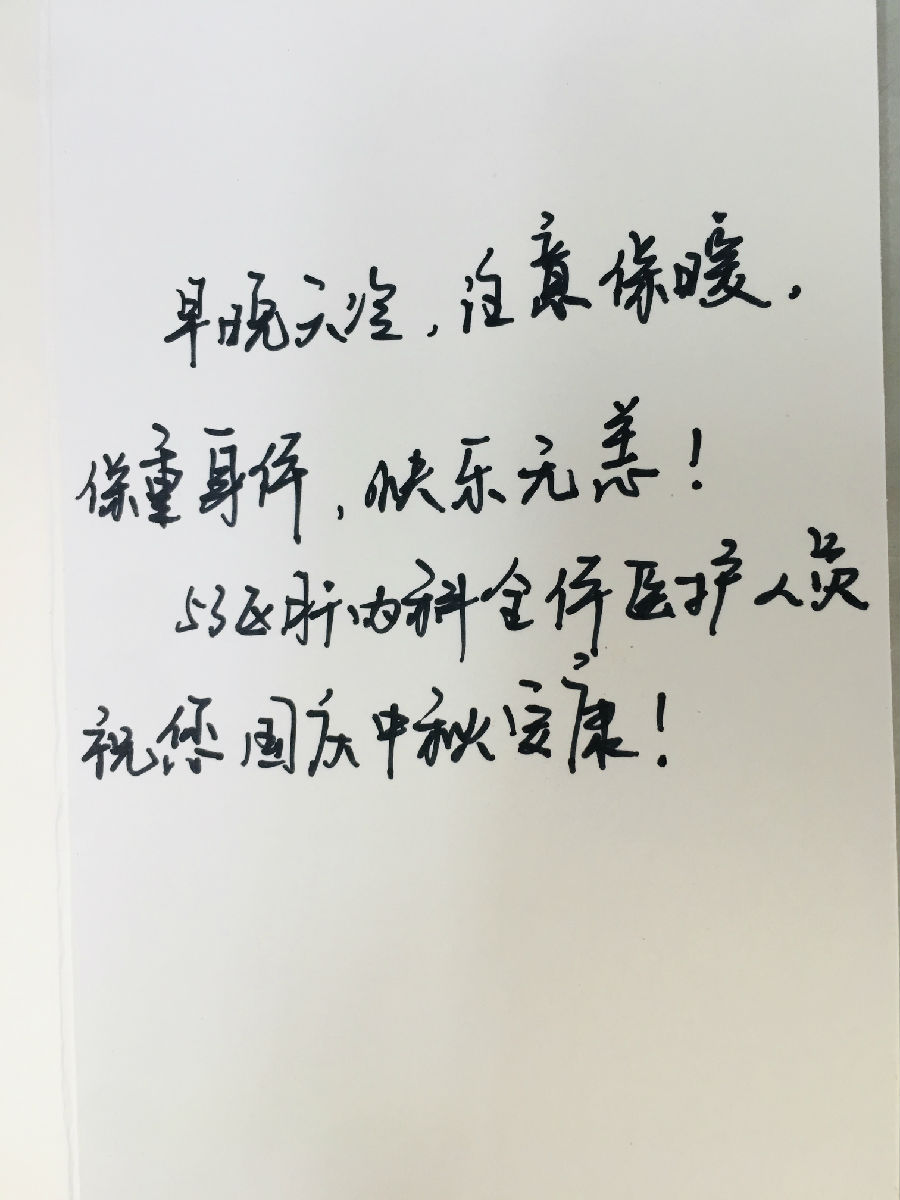 早晚天冷，注意保暖，
保重身体，快乐无恙！
53区肝内科全体医护人员
祝您国庆中秋安康！